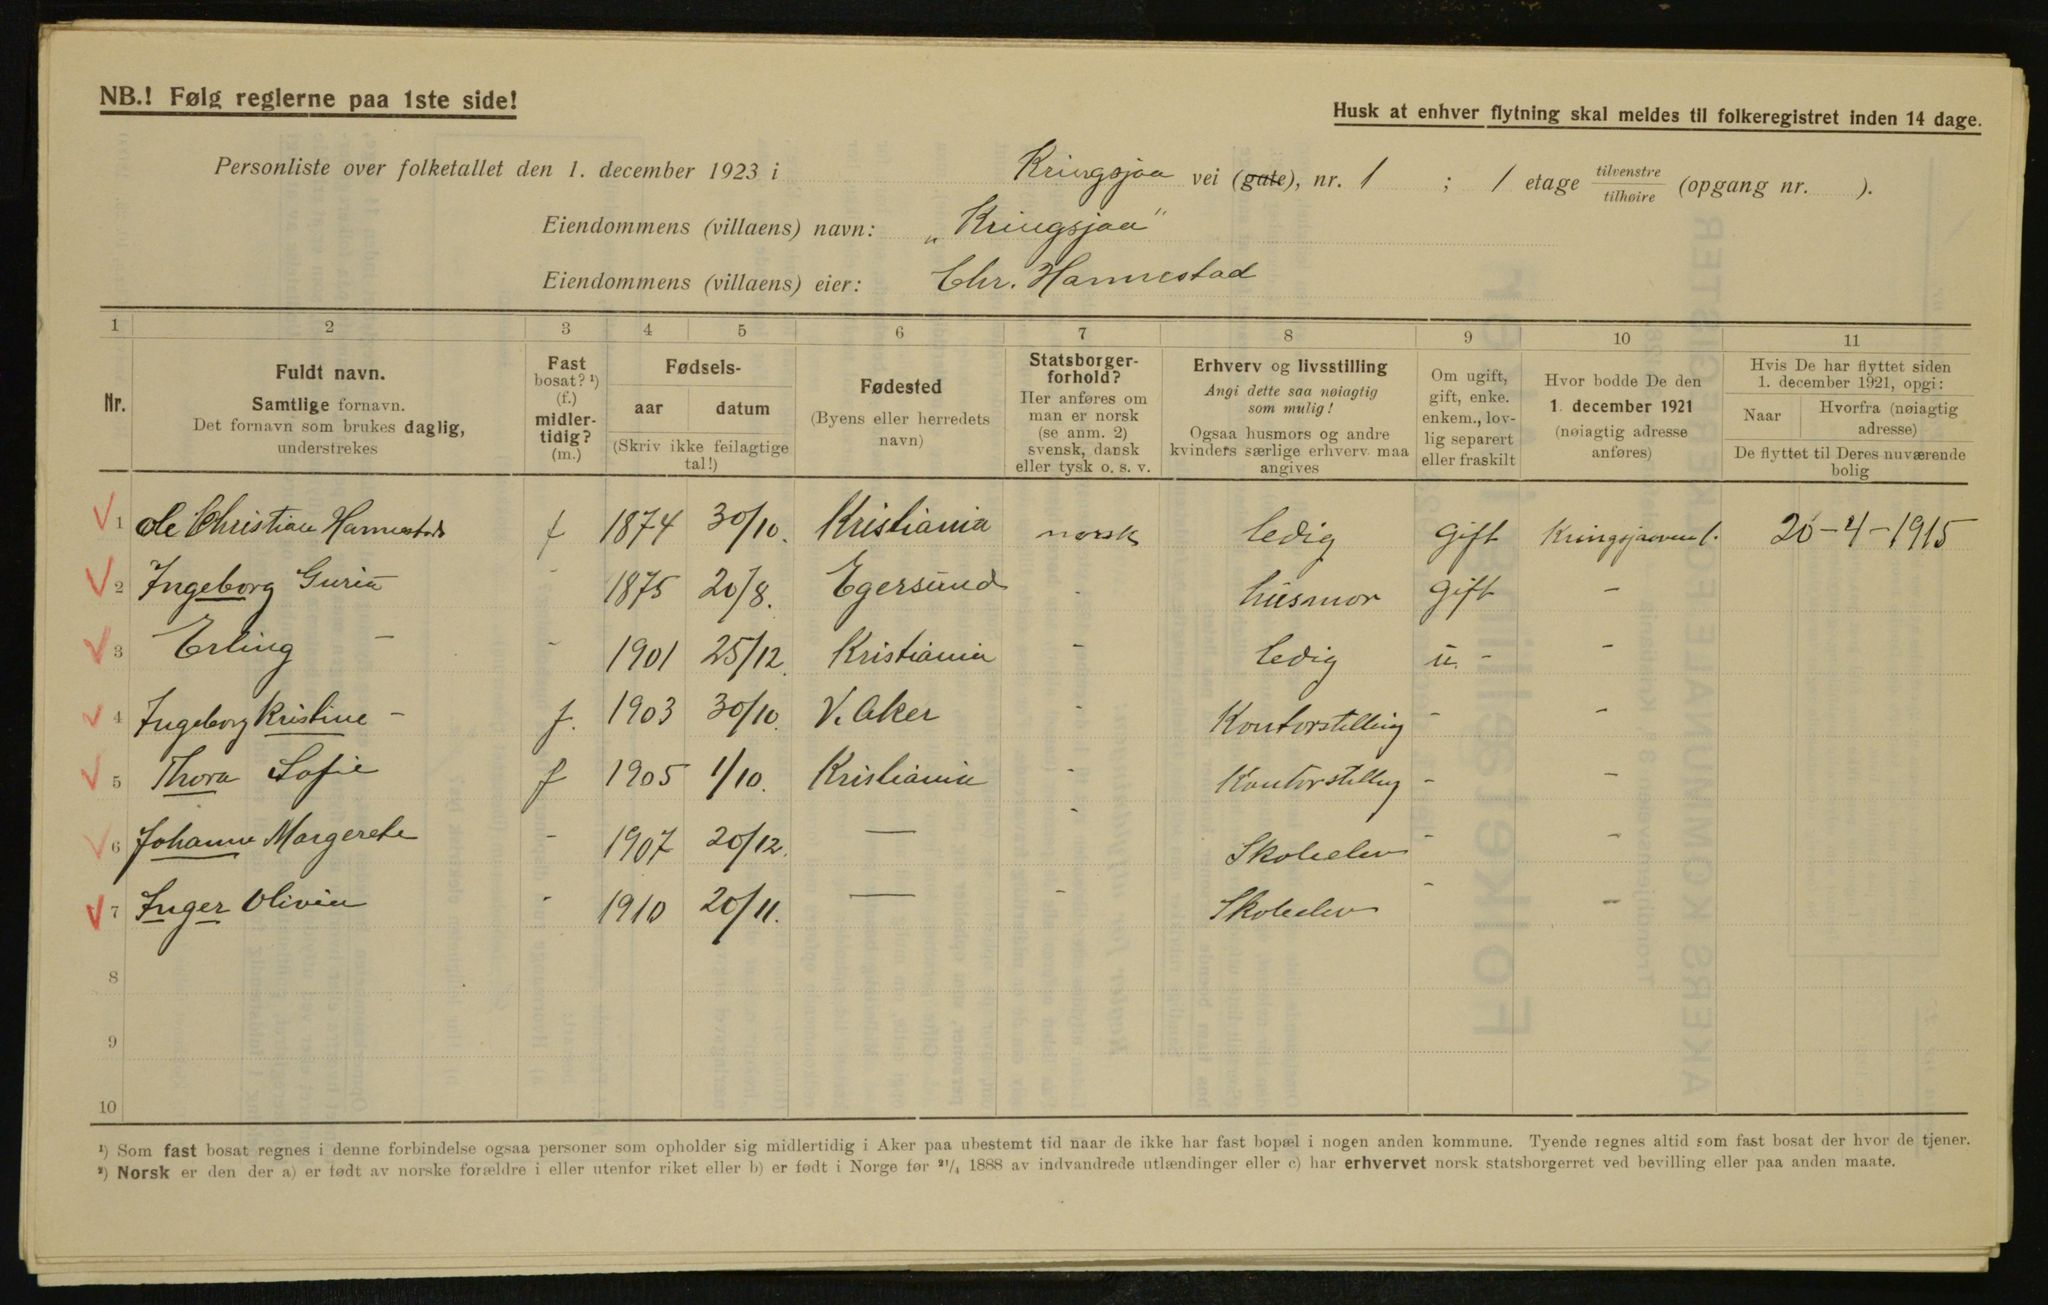 NB.! Følg reglerne paa 1ste side!
Husk at enhver flytning skal meldes til folkeregistret inden 14 dage.
Personliste over folketallet den 1. december 1923 i Kringsjaa vei (gate), nr. 1 ; 1 etage tilvenstre/tilhøire (opgang nr. ).
Eiendommens (villaens) navn: „Kringsjaa"
Eiendommens (villaens) eier: Chr. Hannestad
1 2 3 4 5 6 7 8 9 10 11
Nr.
Fuldt navn.
Samtlige fornavn.
Det fornavn som brukes daglig,
understrekes
Fast
bosat? ¹)
(f.)
midler-
tidig?
(m.)
Fødsels-
aar datum
(Skriv ikke feilagtige
tal!)
Fødested
(Byens eller herredets
navn)
Statsborger-
forhold?
Her anføres om
man er norsk
(se anm. 2)
svensk, dansk
eller tysk o. s. v.
Erhverv og livsstilling
Angi dette saa nøiagtig
som mulig!
Ogsaa husmors og andre
kvinders særlige erhverv maa
angives
Om ugift,
gift, enke.
enkem., lov-
lig separert
eller fraskilt
Hvor bodde De den
1. december 1921
(nøiagtig adresse
anføres)
Hvis De har flyttet siden
1. december 1921, opgi:
Naar Hvorfra (nøiagtig
adresse)
De flyttet til Deres nuværende
bolig
1 Ole Christian Hannestad f 1874 30/10. Kristiania norsk ledig Gift Kringsjaaveien 1. 20-4-1915
2 Ingeborg Guria - 1875 20/8. Egersund - husmor Gift -
3 Erling - - 1901 25/12. Kristiania - ledig u. - -
4 Ingeborg Kristine - f. 1903 30/10. V. Aker - Kontorstilling - -
5 Thora Sofie f 1905 1/10. Kristiania - Kontorstilling - -
6 Johanne Margrete - 1907 20/12. — - Skoleelev - -
7 Inger Olivia - 1910 20/11. — - Skoleelev - -
8
9
10
¹) Som fast bosat regnes i denne forbindelse ogsaa personer som opholder sig midlertidig i Aker paa ubestemt tid naar de ikke har fast bopæl i nogen anden kommune. Tyende regnes altid som fast bosat der hvor de tjener.
²) Norsk er den der a) er født av norske forældre i eller utenfor riket eller b) er født i Norge før ²¹/₄ 1888 av indvandrede utlændinger eller c) har erhvervet norsk statsborgerret ved bevilling eller paa anden maate.